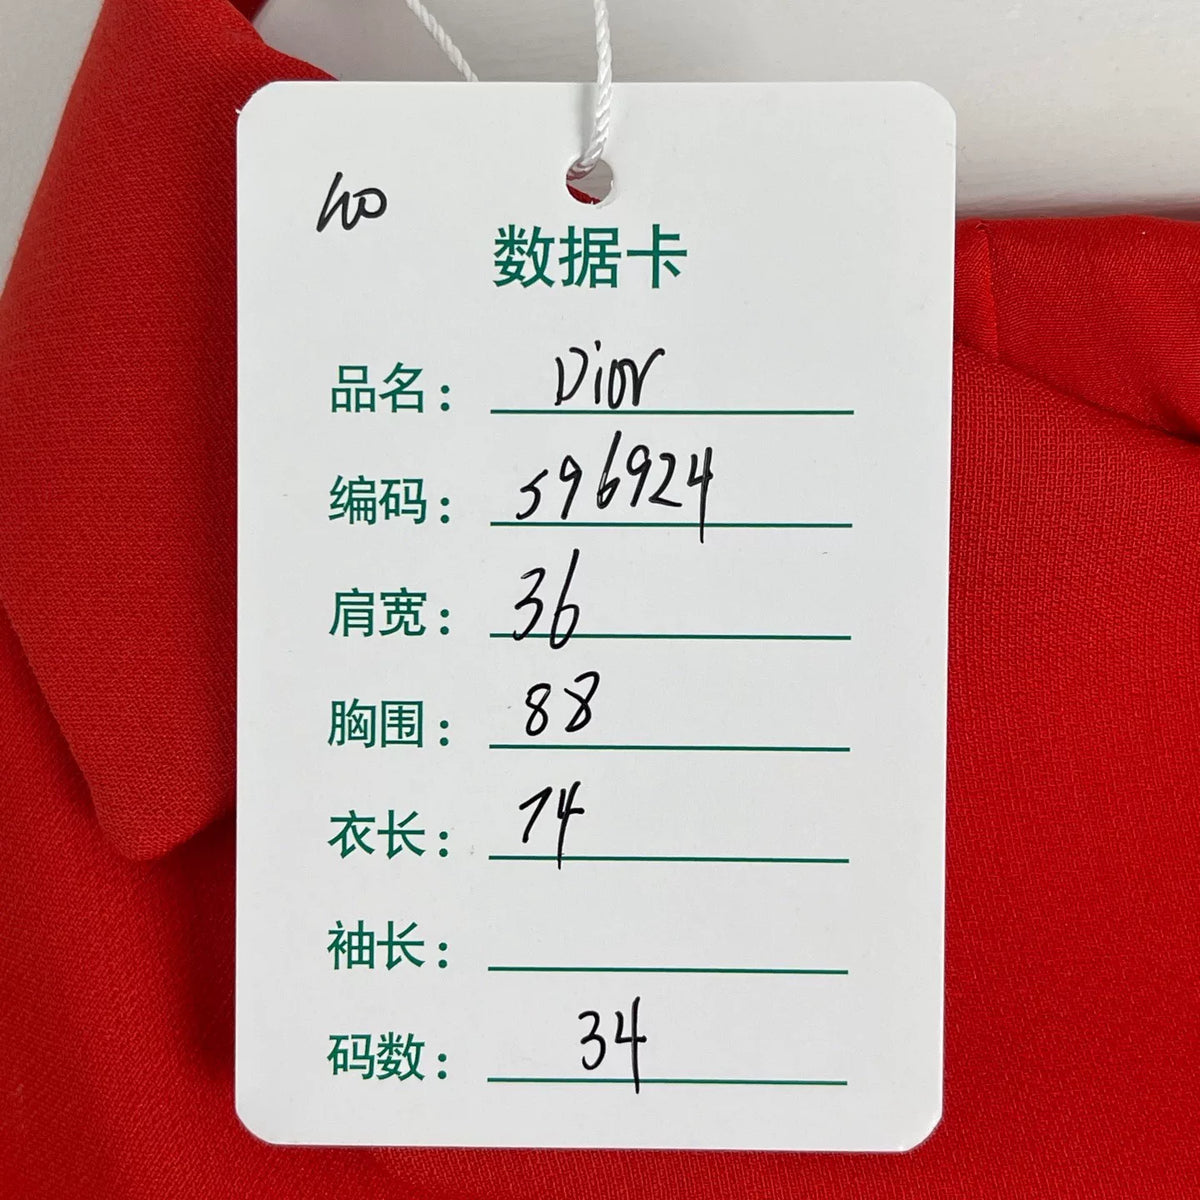 数据卡
品名： Dior
编码： 596924
肩宽： 36
胸围： 88
衣长： 74
袖长：
码数： 34